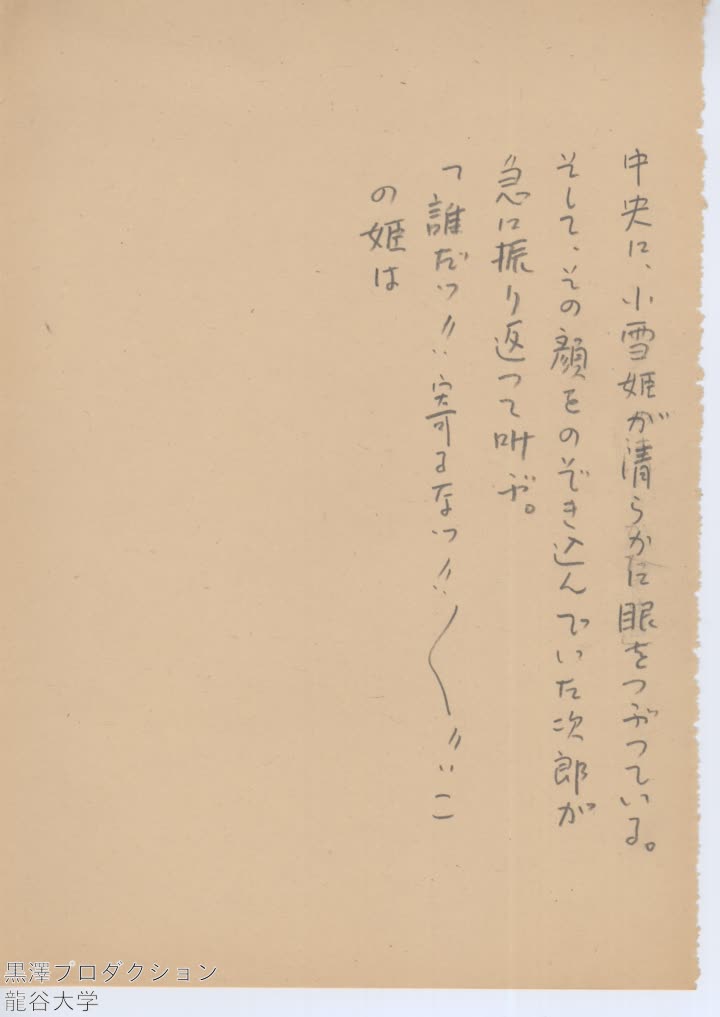 中央に、小雪姫が清らかに眼をつぶつている。
そして、その顔をのぞき込んでいた次郎が
急に振り返つて叫ぶ。
「誰だッ!!寄るなッ!!〳〵!!こ
の姫は
黒澤プロダクション
龍谷大学